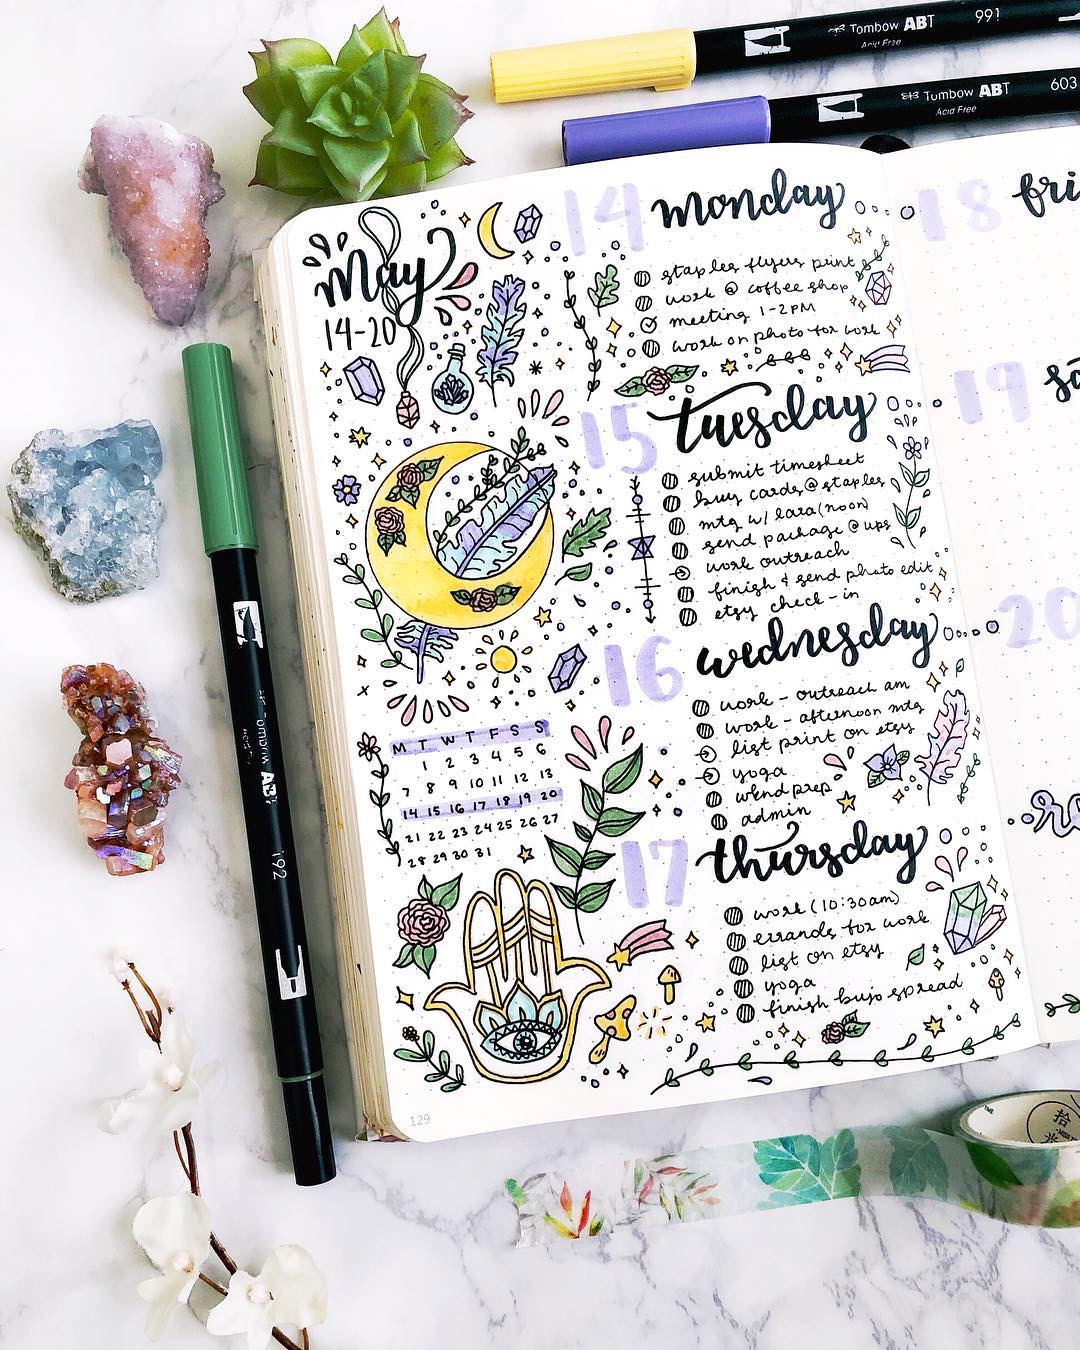 Tombow ABT 991
Acid Free
Tombow ABT 603
Acid Free
May
14-20
14 monday
staples flyers print
work @ coffee shop
meeting 1-2PM
work on photo for work
15 tuesday
submit timesheet
buy cards @ staples
mtg w/ lara (noon)
send package @ ups
work outreach
finish & send photo edit
etsy check-in
16 wednesday
work - outreach am
work - afternoon mtg
list print on etsy
yoga
wknd prep
admin
M T W T F S S
1 2 3 4 5 6
7 8 9 10 11 12 13
14 15 16 17 18 19 20
21 22 23 24 25 26 27
28 29 30 31
17 thursday
work (10:30am)
errands for work
list on etsy
yoga
finish bujo spread
129
18 fri
19 sa
20
Tombow ABT
192